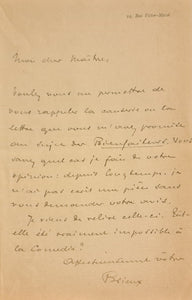 Mon cher Maître,
Voulez vous me permettre de
vous rappeler la causerie ou la
lettre que vous m'avez promise
au sujet des Bienfaiteurs. Vous
savez quel cas je fais de votre
opinion : depuis longtemps je
n'ai pas écrit une pièce sans
vous demander votre avis.
Je viens de relire celle-ci. Est-
elle vraiment impossible à
la Comédie ?
Affectueusement vôtre
Brieux